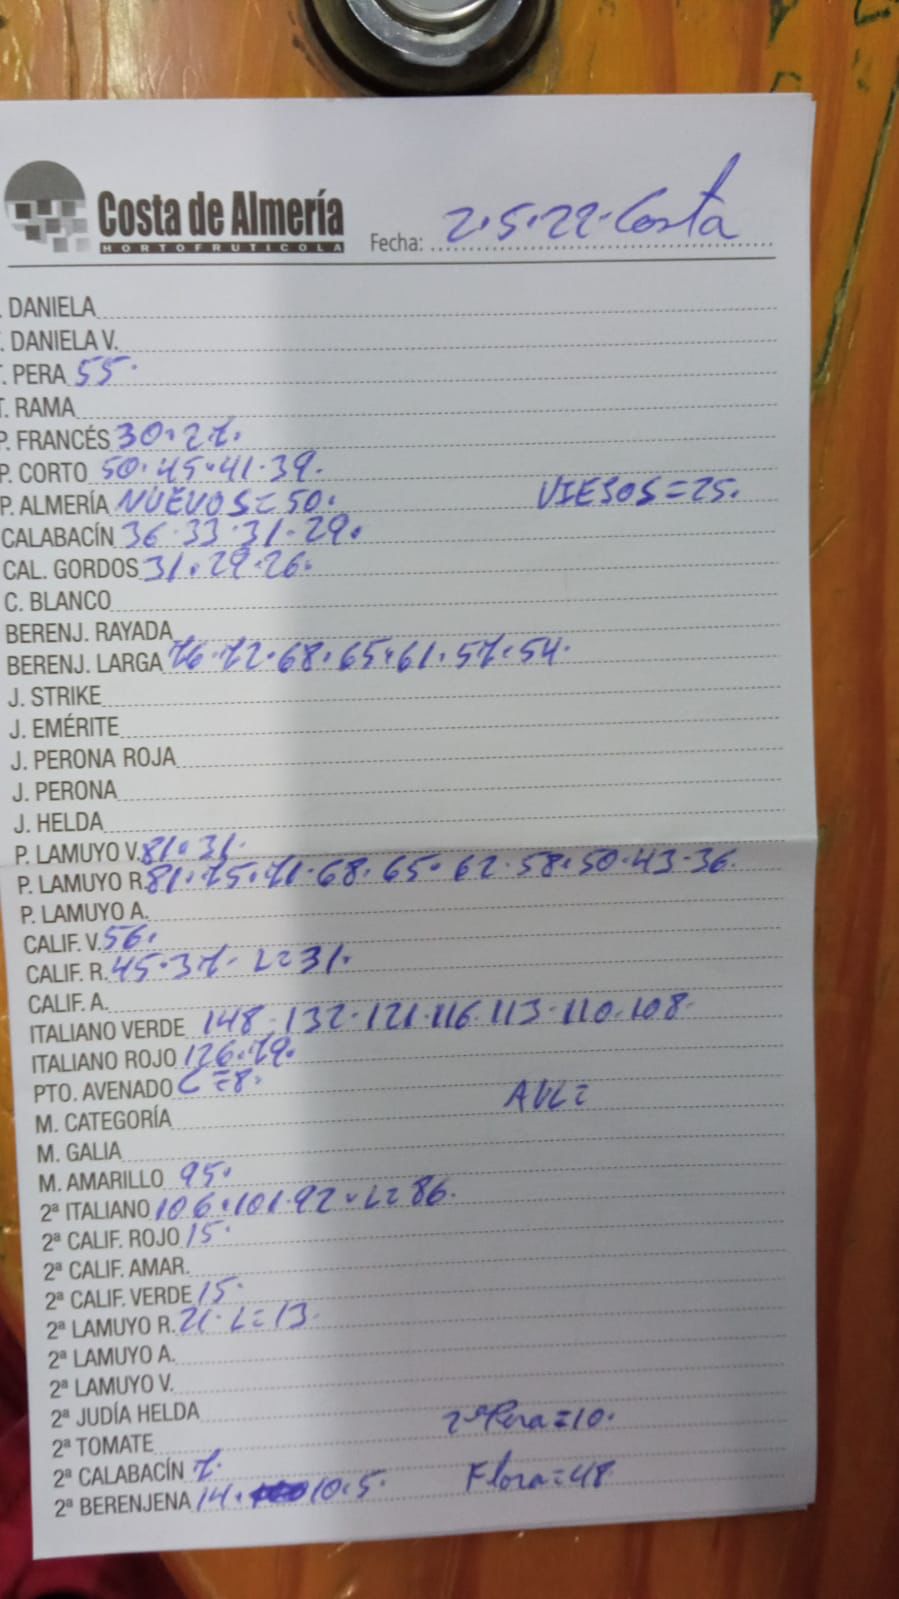 Costa de Almería
HORTOFRUTICOLA
Fecha: 2.5.22. Costa
. DANIELA
. DANIELA V.
T. PERA 55.
T. RAMA
P. FRANCÉS 30.27.
P. CORTO 50.45.41.39.
P. ALMERÍA NUEVOS=50. VIESOS=25.
CALABACÍN 36.33.31.29.
CAL. GORDOS 31.29.26.
C. BLANCO
BERENJ. RAYADA
BERENJ. LARGA 76.72.68.65.61.57.54.
J. STRIKE
J. EMÉRITE
J. PERONA ROJA
J. PERONA
J. HELDA
P. LAMUYO V. 81.31.
P. LAMUYO R. 81.75.71.68.65.62.58.50.43.36.
P. LAMUYO A.
CALIF. V. 56.
CALIF. R. 45.37. L=31.
CALIF. A.
ITALIANO VERDE 148.132.121.116.113.110.108.
ITALIANO ROJO 126.79.
PTO. AVENADO C=8.
M. CATEGORÍA
M. GALIA
M. AMARILLO 95.
2ª ITALIANO 106.101.92. L=86.
2ª CALIF. ROJO 15.
2ª CALIF. AMAR.
2ª CALIF. VERDE 15.
2ª LAMUYO R. 21. L=13.
2ª LAMUYO A.
2ª LAMUYO V.
2ª JUDÍA HELDA
2ª TOMATE 2ª Pera=10.
2ª CALABACÍN 7.
2ª BERENJENA 14. 10.5. Flora=48